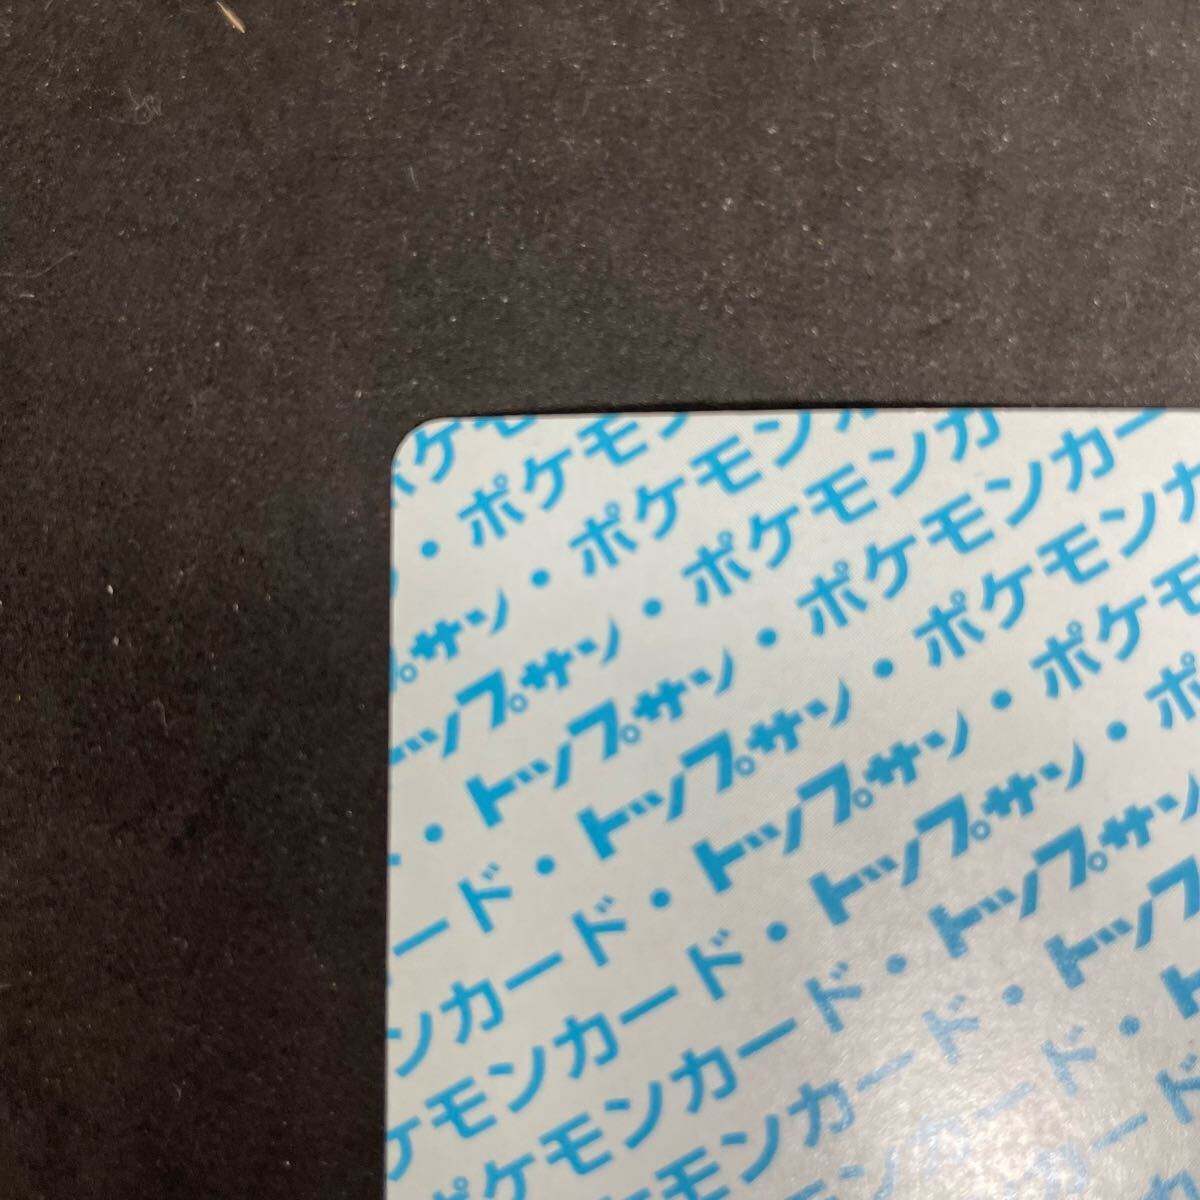 ポケモ
・ポケモン
プサン・ポケモンカ
トップサン・ポケモンカ
・トップサン・ポケモンカー
ード・トップサン・ポケモンカ
ンカード・トップサン・ポケモ
ケモンカード・トップサン・ポ
ポケモンカード・トップサン
ポケモンカード・トップ
モンカード・ト
ンカード